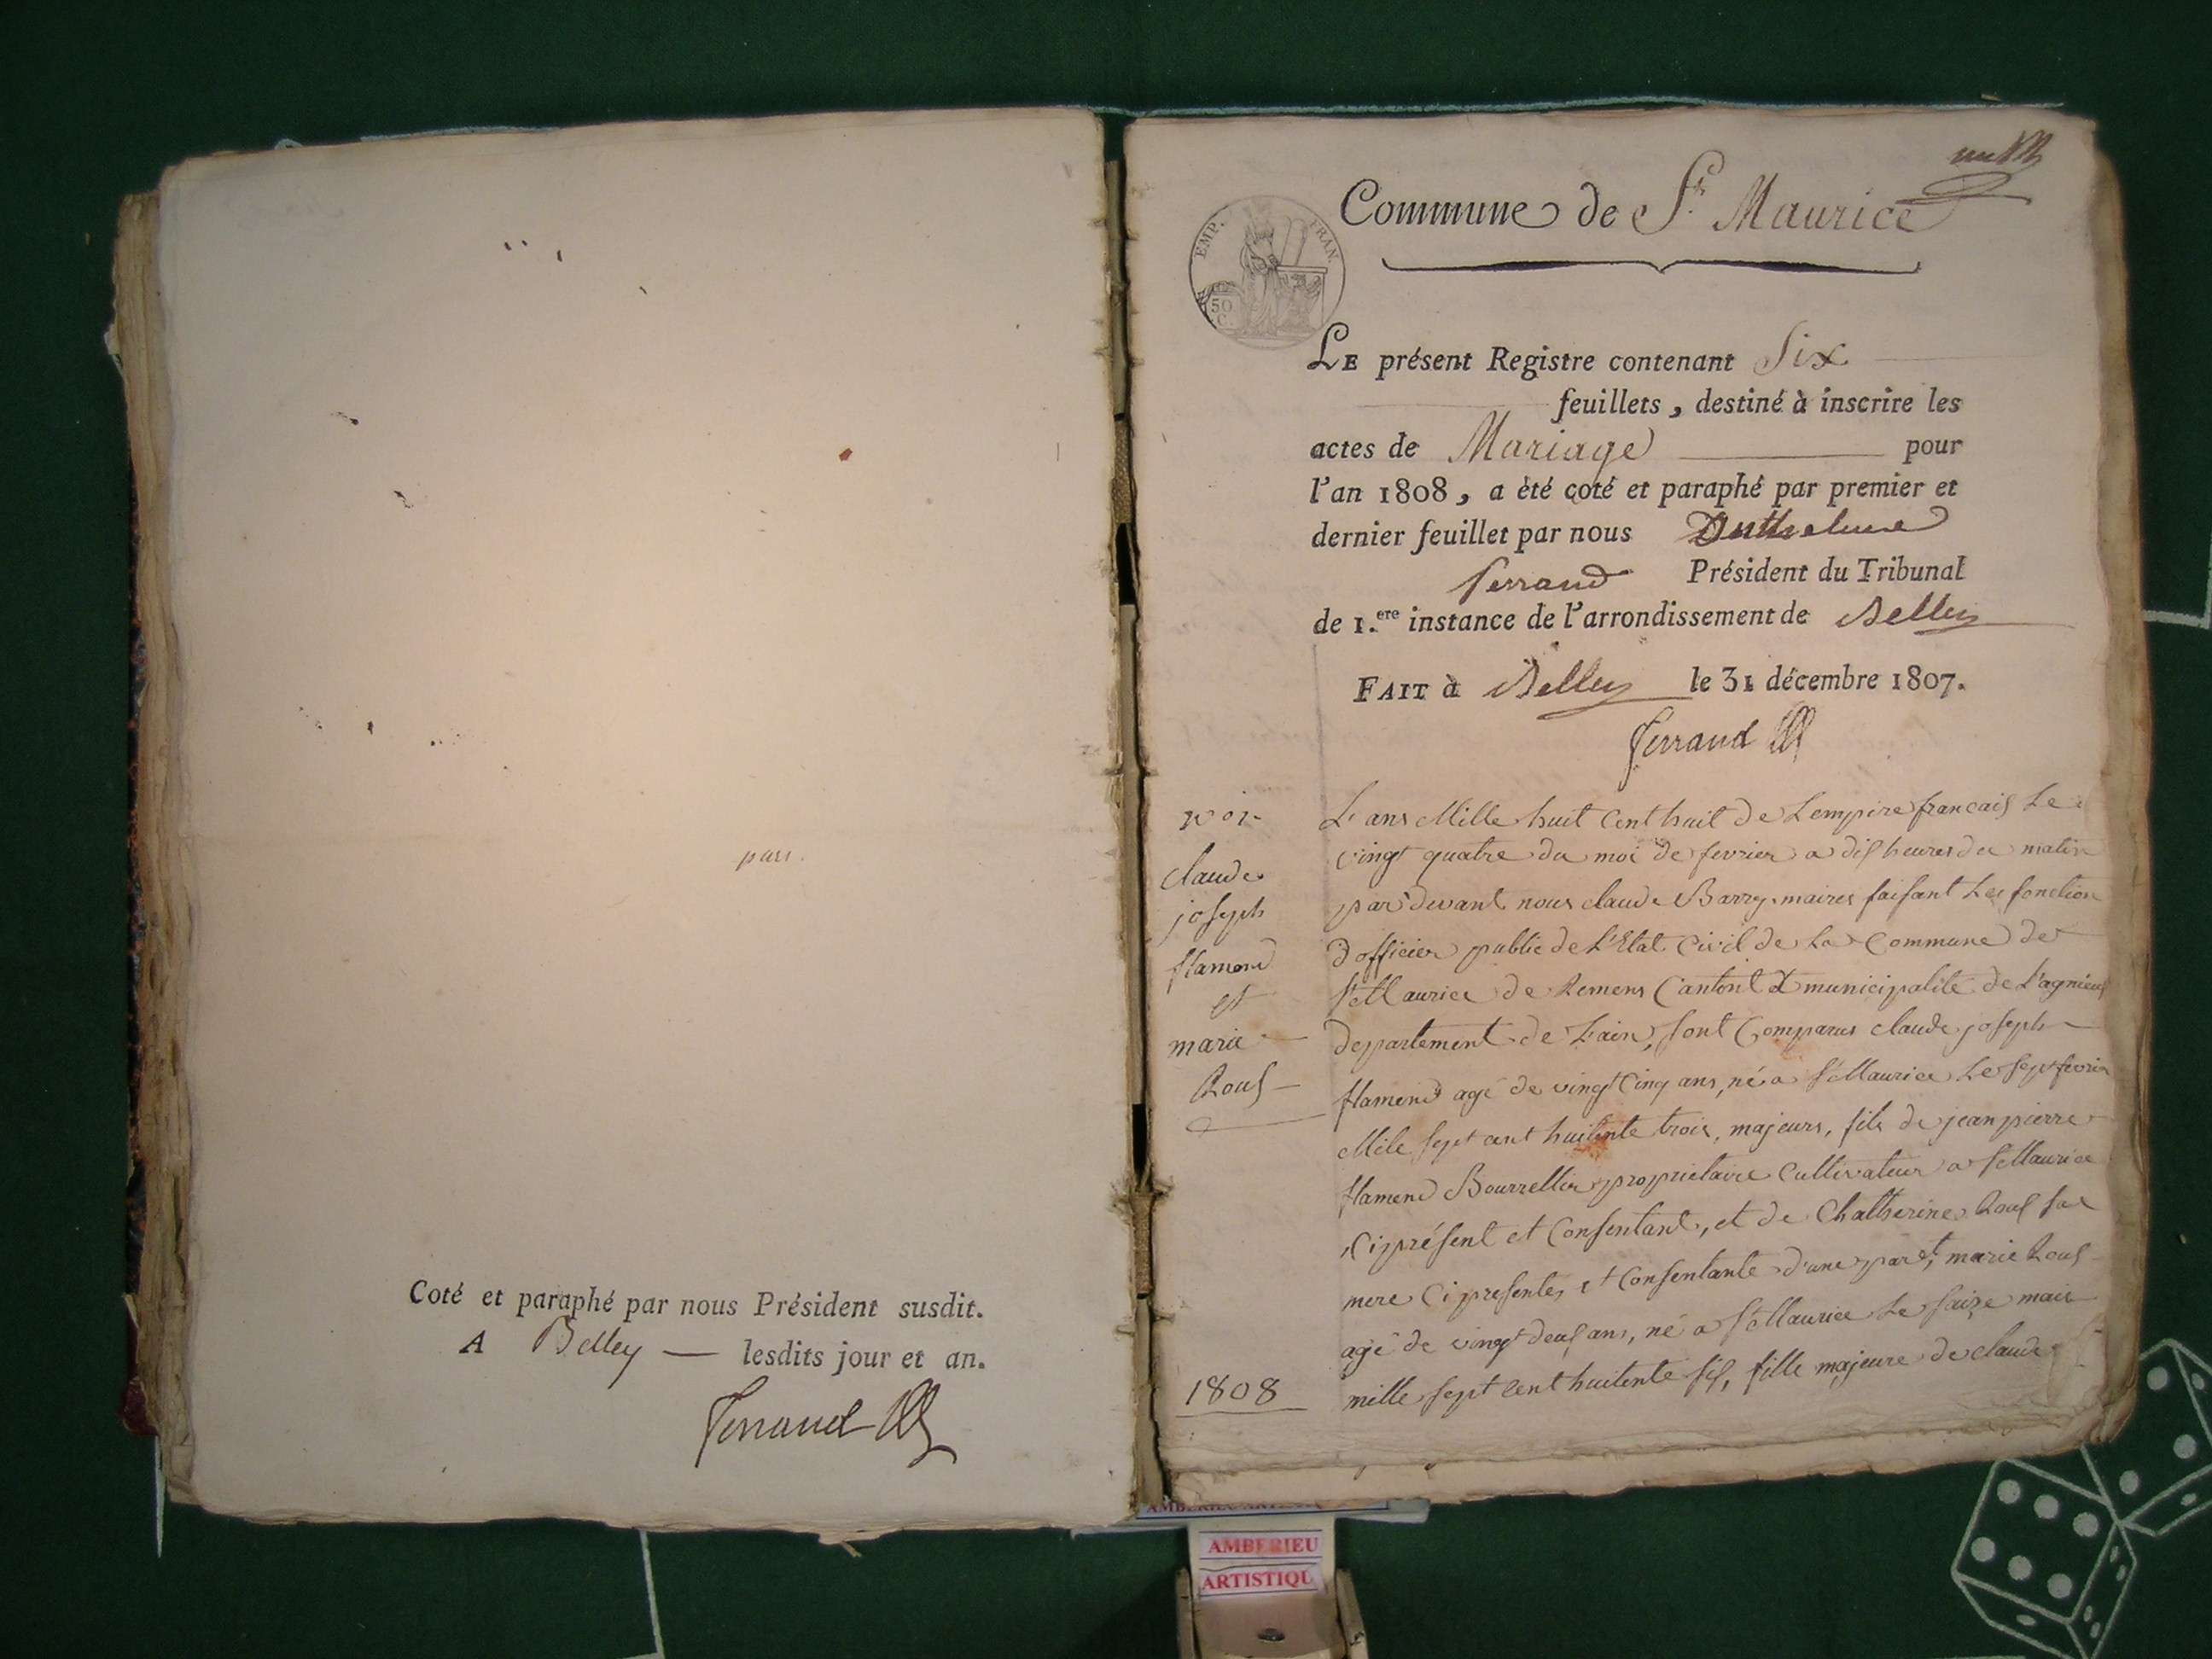 Coté et paraphé par nous Président susdit.
A Belley — lesdits jour et an.
Ferrand
Commune de St. Maurice
EMP. FRAN.
50 C.
LE présent Registre contenant Six
feuillets, destiné à inscrire les
actes de Mariage pour
l'an 1808, a été coté et paraphé par premier et
dernier feuillet par nous Anthelme
Ferrand Président du Tribunal
de 1.ere instance de l'arrondissement de Belley
FAIT à Belley le 31 décembre 1807.
Ferrand
Claude
joseph
flamend
et
marie
Rous
1808
L'ans Mille huit Cent huit de Lempire francais Le
vingt quatre du moi de fevrier a dis heures du matin
par devant nous claude Barry maires faisant Les fonction
d'officier public de L'Etat Civil de La Commune de
St Maurice de Remens Cantont & municipalité de Lagnieu
departement de Lain, sont Comparus claude joseph
flamend agé de vingt Cinq ans, né a St Maurice Le sept fevrier
Mile sept cent huitente trois, majeurs, fils de jean pierre
flamend Bourrellier propriétaire Cultivateur a St Maurice
Ci présent et Consentant, et de Chatherine Rous sa
mere Ci presente, et Consentante d'une part, marie Rous
agé de vingt deus ans, né a St Maurice Le saize mais
mille sept cent huitente sis, fille majeure de claude
AMBERIEU
ARTISTIQU